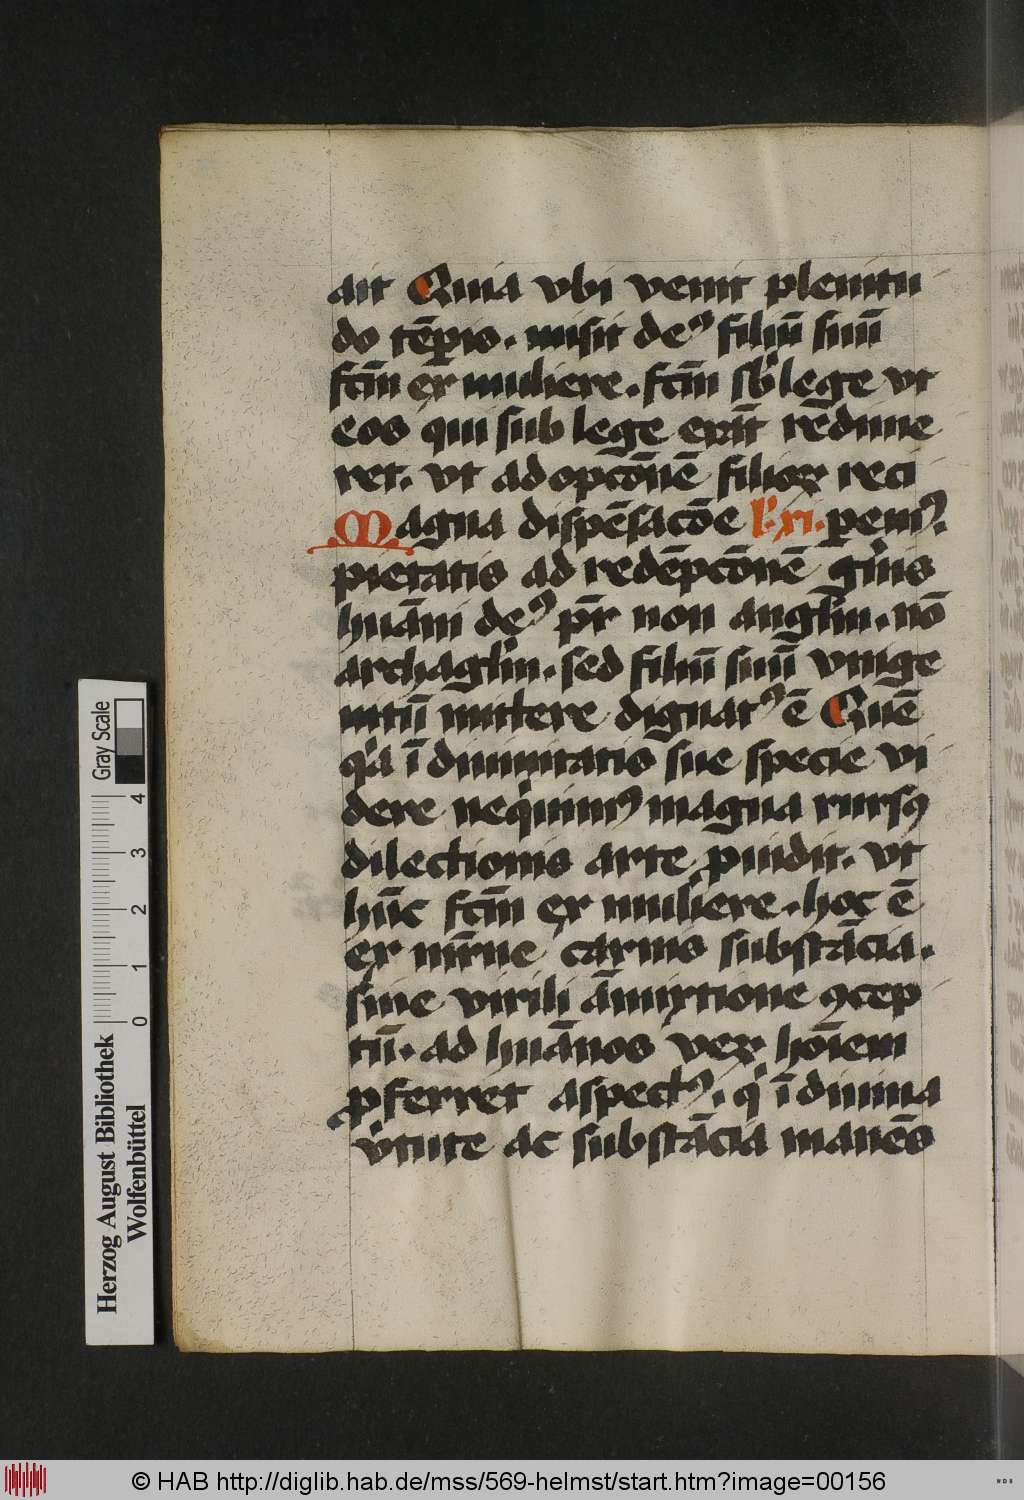 ait Quia vbi venit plenitu
do te̅pis. misit deꝰ filiu̅ suu̅
fc̅m ex muliere. fc̅m sb lege vt
eos qui sub lege era̅t re̅dime
ret. vt adopco̅ne̅ filioꝝ reci
Magna dispe̅saco̅e l'.xi. peremꝰ.
pietatis ad rede̅pco̅ne̅ gn̅is
hua̅ni deꝰ pr̅ non angl'm. no̅
archagl'm. sed filiu̅ suu̅ vnige
nitu̅ mittere dignatꝰ e̅ Que̅
qa i̅ diuinitatis sue specie vi
dere nequimꝰ magna rursꝰ
dilectionis arte ꝓuidit. vt
hu̅c fc̅m ex muliere. hoc e̅
ex mr̅ne carnis substa̅cia.
sine virili a̅mixtione ꝯcep
tu̅. ad hua̅nos veꝝ ho̅iem
ꝓferret aspectꝰ. q i̅ diuina
v̓tute ac substa̅cia mane̅s
Gray Scale
4
3
2
1
0
Herzog August Bibliothek
Wolfenbüttel
© HAB http://diglib.hab.de/mss/569-helmst/start.htm?image=00156